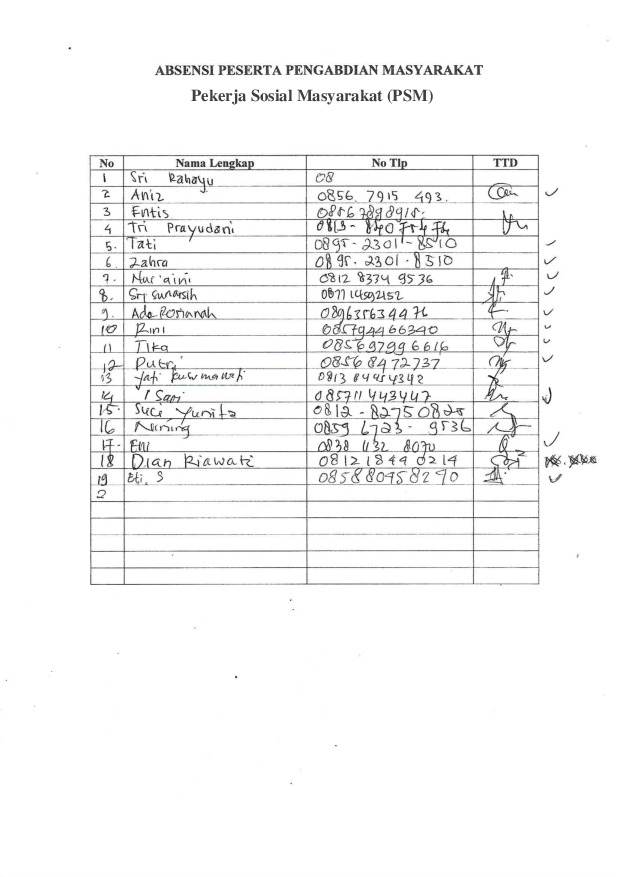 ABSENSI PESERTA PENGABDIAN MASYARAKAT
Pekerja Sosial Masyarakat (PSM)
No Nama Lengkap No Tlp TTD
1 Sri Rahayu 08
2 Aniz 0856. 7915 493.
3 Entis 08567898915.
4 Tri Prayudani 0813-840 754 74
5. Tati 0895-2301-8510
6. Zahra 0895. 2301-8510
7. Nur'aini 0812 8374 9536
8. Sri Sunarsih 087714592152
9. Ade Rosianah 089635634476
10 Rini 085794466340
11 Tika 085697996616
12 Putri 08568472737
13 Jati Kusumawati 0813 84454342
14 I Sari 085711443447
15. Suci Yunita 0812-82750825
16 Nining 0859 6723-9536
17. Eni 0838 1132 8070
18 Dian Riawati 081218440214
19 Eti. S 085880958290
2